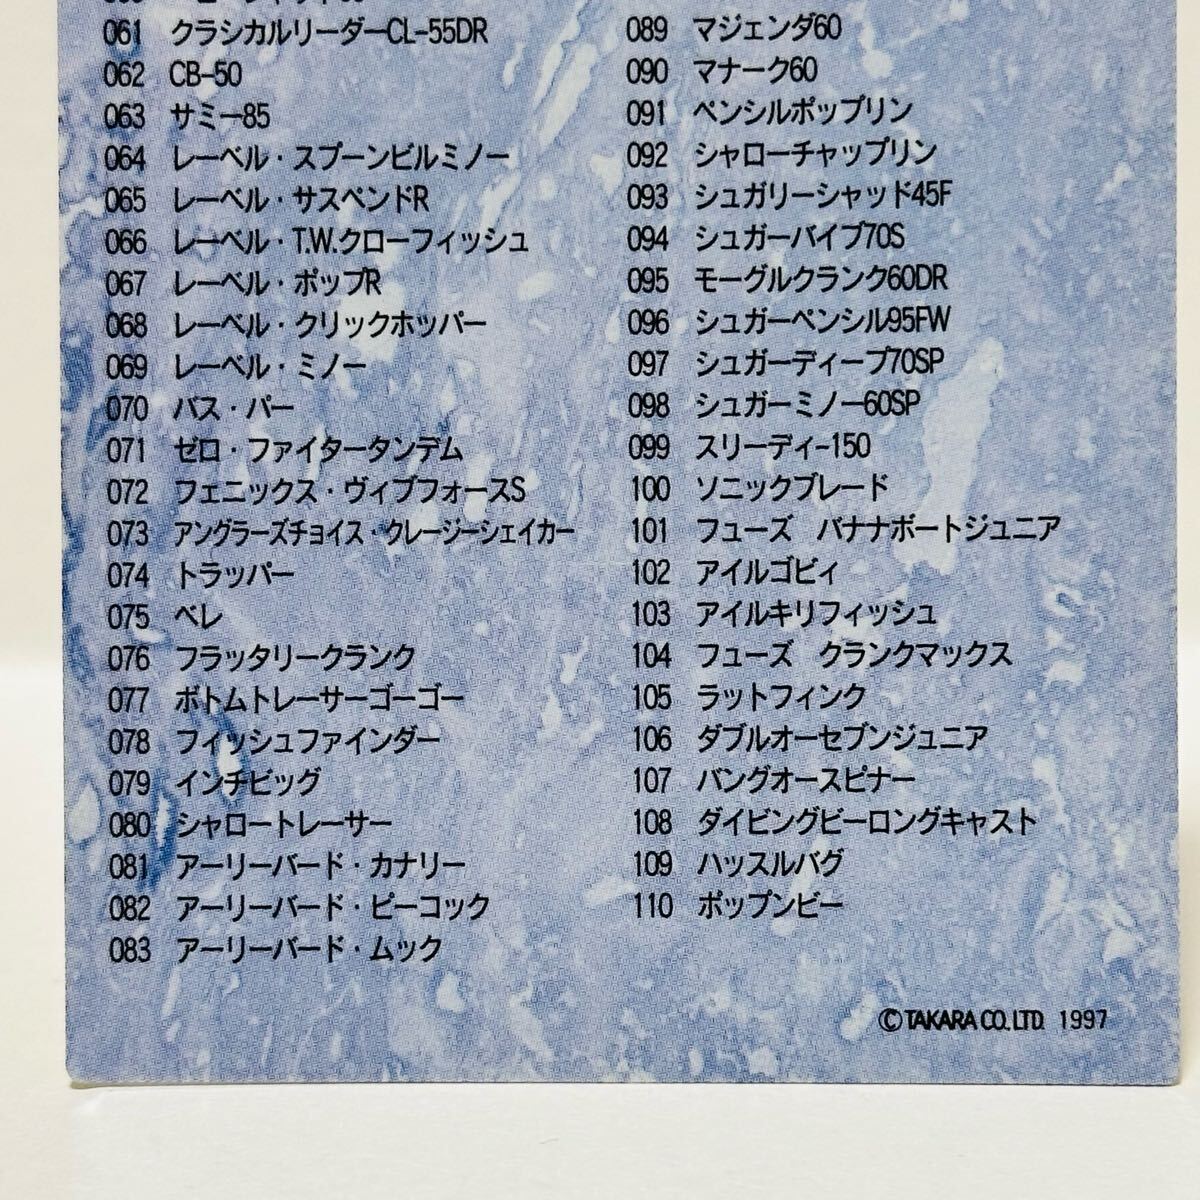 061 クラシカルリーダーCL-55DR
062 CB-50
063 サミー85
064 レーベル・スプーンビルミノー
065 レーベル・サスペンドR
066 レーベル・T.W.クローフィッシュ
067 レーベル・ポップR
068 レーベル・クリックホッパー
069 レーベル・ミノー
070 バス・パー
071 ゼロ・ファイタータンデム
072 フェニックス・ヴィブフォースS
073 アングラーズチョイス・クレージーシェイカー
074 トラッパー
075 ベレ
076 フラッタリークランク
077 ボトムトレーサーゴーゴー
078 フィッシュファインダー
079 インチビッグ
080 シャロートレーサー
081 アーリーバード・カナリー
082 アーリーバード・ピーコック
083 アーリーバード・ムック
089 マジェンダ60
090 マナーク60
091 ペンシルポップリン
092 シャローチャップリン
093 シュガリーシャッド45F
094 シュガーバイブ70S
095 モーグルクランク60DR
096 シュガーペンシル95FW
097 シュガーディープ70SP
098 シュガーミノー60SP
099 スリーディ-150
100 ソニックブレード
101 フューズ バナナボートジュニア
102 アイルゴビィ
103 アイルキリフィッシュ
104 フューズ クランクマックス
105 ラットフィンク
106 ダブルオーセブンジュニア
107 バングオースピナー
108 ダイビングビーロングキャスト
109 ハッスルバグ
110 ポップンビー
©TAKARA CO.LTD. 1997